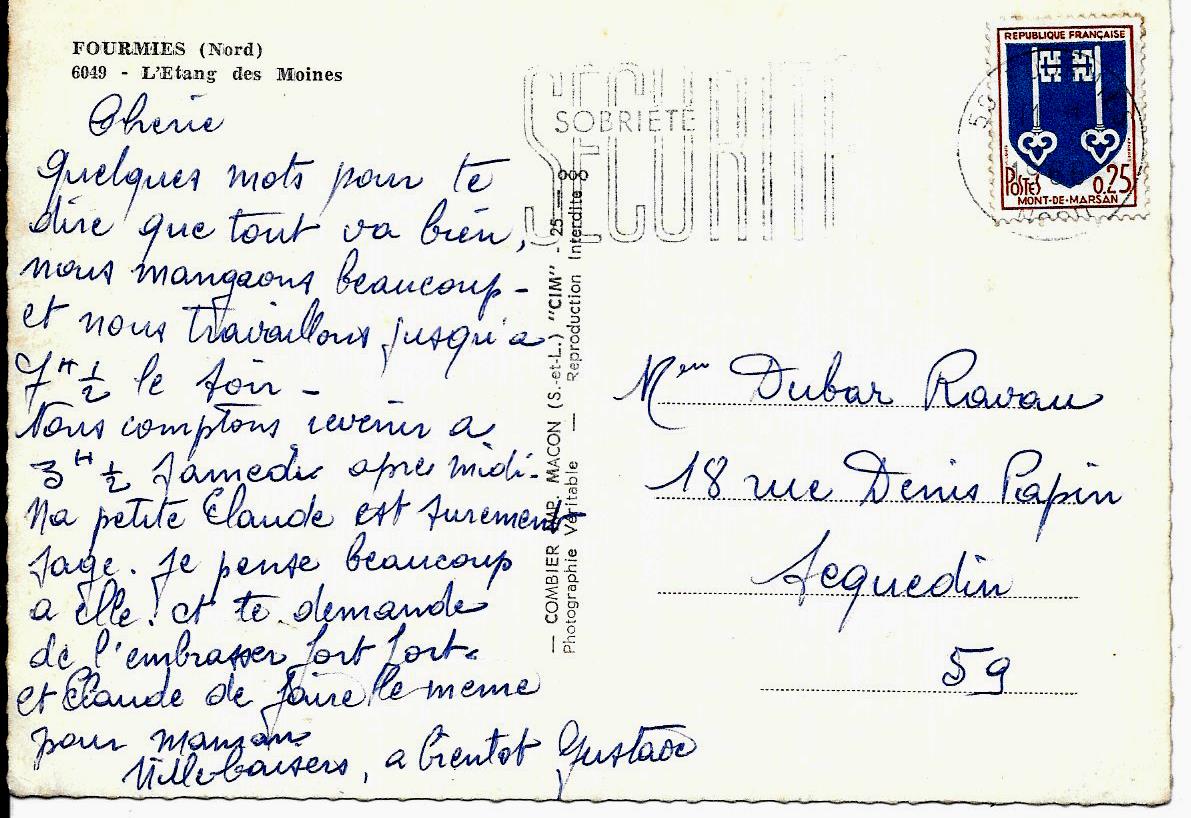 FOURMIES (Nord)
6049 - L'Etang des Moines
Cherie
quelques mots pour te
dire que tout va bien,
nous mangeons beaucoup -
et nous travaillons jusqu'a
7 H 1/2 le soir -
Nous comptons revenir a
3 H 1/2 samedi apre midi -
Ma petite Claude est surement
sage. je pense beaucoup
a elle. et te demande
de l'embrasser fort fort.
et Claude de faire le meme
pour maman
Mille baisers, a bientot Gustave
— COMBIER IMP. MACON (S.-et-L.) "CIM" - 25 —
Photographie Véritable — Reproduction Interdite
SOBRIETE
SECURITE
REPUBLIQUE FRANÇAISE
POSTES 0,25
MONT-DE-MARSAN
NORD
Mme Dubar Ravau
18 rue Denis Papin
Sequedin
59